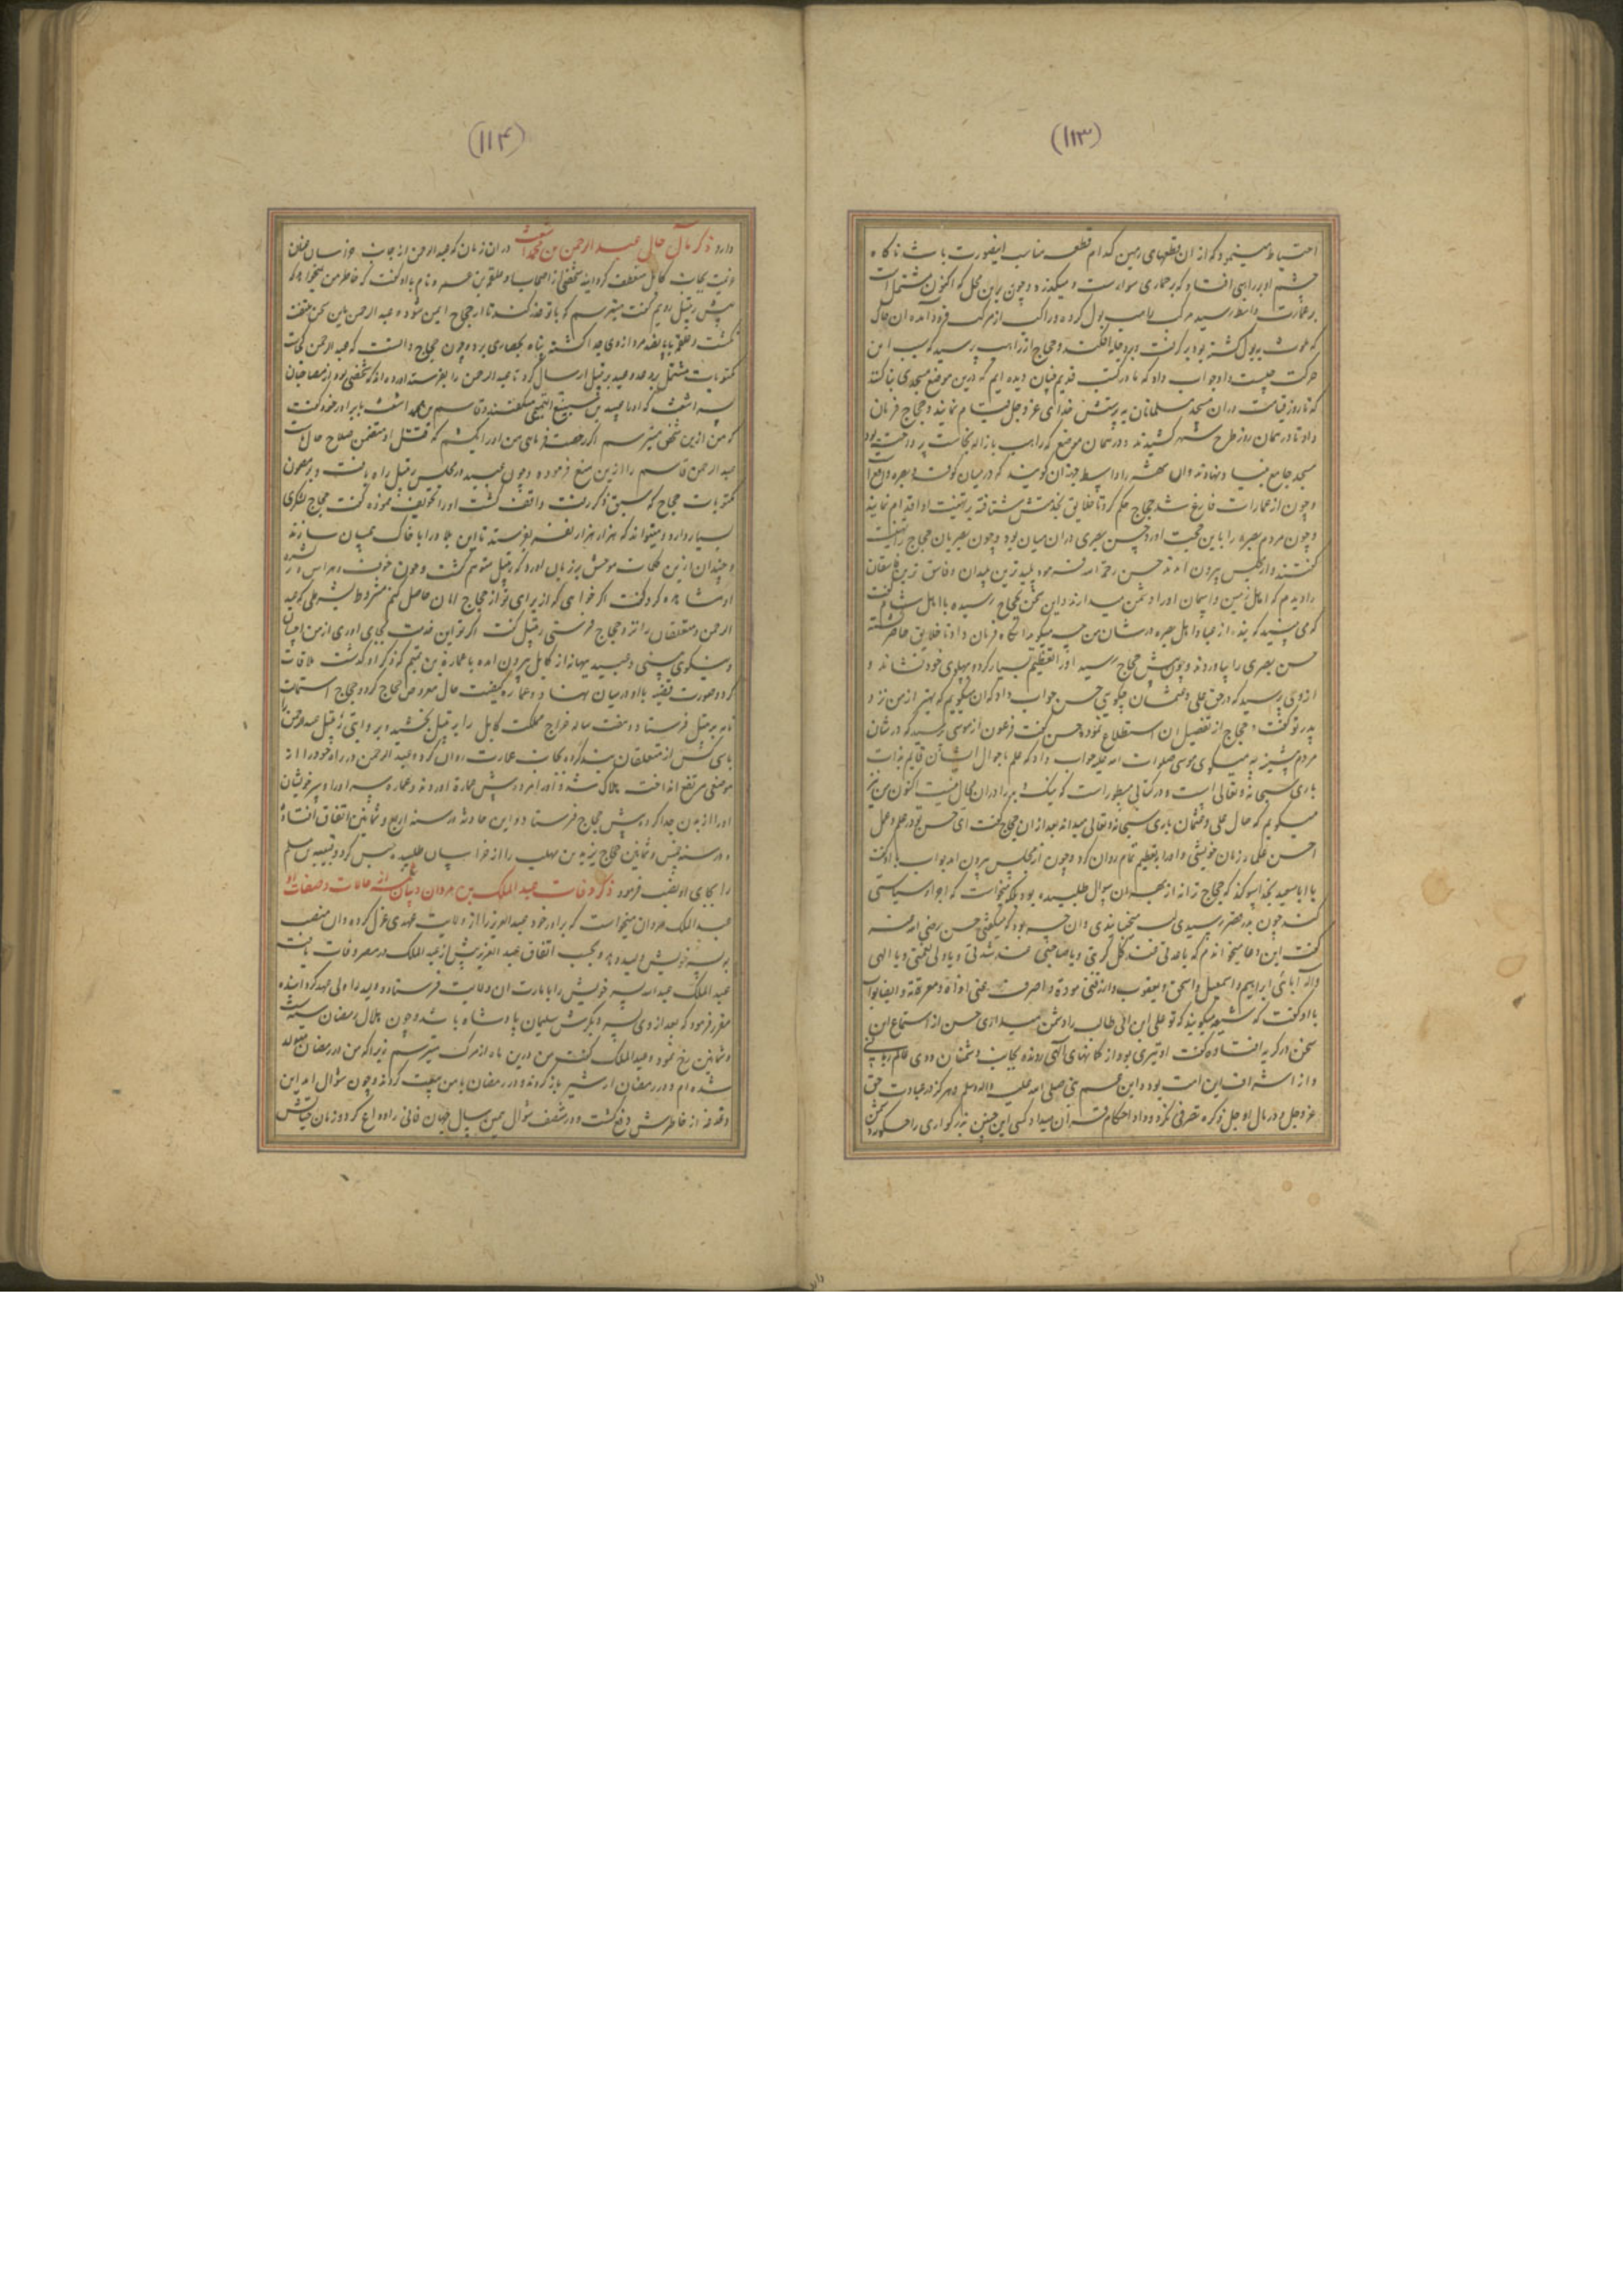 (۱۱۳)
احتیاط مینمود که از ان قطعهای زمین کدام قطعه مناسب اینصورت باشد ناکاه
چشم او بر راهبی افتاد که بر حماری سوارست و میکذرد و چون براین محل که اکنون مشتمل است
بر عمارت واسط رسید مرکب راهب بول کرده و راکب از مرکب فرود آمده ان خاک
که ملوث ببول کشته بود برکرفت و بدجله افکند و حجاج از راهب پرسید که سبب این
حرکت چیست او جواب داد که ما در کتب قدیم چنان دیده ایم که درین موضع مسجدی بنا کنند
که تا روز قیامت دران مسجد مسلمانان به پرستش خدای عز و جل قیام نمایند و حجاج فرمان
داد تا در همان روز طرح شهر کشیدند و در همان موضع که راهب بازاله نجاست پرداخته بود
مسجد جامع بنیاد نهادند وان شهر را واسط جهة ان کویند که در میان کوفه و بصره واقع است
و چون از عمارات فارغ شد حجاج حکم کرد تا خلایق بخدمتش شتافته بر تهنیت او اقدام نمایند
و چون مردم بصره را باین جهت آورد حسن بصری دران میان بود و چون بصریان حجاج را تهنیت
کفتند و از مجلس بیرون امدند حسن رحمة الله فرمود پلیدترین پلیدان و فاسق ترین فاسقان
را دیدم که اهل زمین و اسمان او را دشمن میدارند و این سخن بحجاج رسیده با اهل شام کفت
که می بینید که بنده از عباد اهل بصره در شان من چه میکوید انکاه فرمان داد تا خلایق حاضر کشته
حسن بصری را بیاوردند و چون پیش حجاج رسید او را تعظیم بسیار کرد و بپهلوی خود نشاند و
ازوی پرسید که در حق علی و عثمان چکویی حسن جواب داد که ان میکویم که بهتر از من نزد
بدتر از تو کفت و حجاج از تفصیل ان استطلاع نموده حسن کفت فرعون از موسی پرسید که در شان
مردم پیشینه چه میکویی موسی صلوات الله علیه جواب داد که علم باحوال ایشان قایم بذات
باری سبحانه و تعالی است و در کتابی مسطور است که نیک و بد را دران مجال نیست اکنون من نیز
میکویم که حال علی و عثمان باری سبحانه و تعالی میداند بعد ازان حجاج کفت ای حسن تو در علم و عمل
احسن علماء زمان خویشی و او را بتعظیم تمام روان کرد و چون از مجلس بیرون امد بواب با او کفت
یا ابا سعید بخدا سوکند که حجاج ترا نه از بهر ان سوال طلبیده بود بلکه میخواست که با تو سیاستی
کند چون بدر قصر رسیدی لب میجنبانیدی وان چه بود که میکفتی حسن رضی الله عنه
کفت این دعا میخواندم که یا عدتی عند کل کربتی و یا صاحبی عند شدتی و یا ولی نعمتی و یا الهی
و اله آبائی ابراهیم و اسمعیل و اسحق و یعقوب وارزقنی مودته و اصرف عنی اذاه و معرته و ایضا بواب
با او کفت که شیعه میکویند که تو علی ابن ابی طالب را دشمن میداری حسن از استماع این
سخن در کریه افتاده کفت او تیری بود از کمانهای الهی رونده بجانب دشمنان و وی عالم ربانی
و از اشراف این امت بود و ابن عم نبی صلی الله علیه و اله و سلم و هرکز در عبادت حق
عز و جل و در مال او جل ذکره تصرفی نکرد و داد احکام قران میداد کسی این چنین بزرکواری را چکونه دشمن
(۱۱۴)
دارد ذکر مآل حال عبد الرحمن بن محمد اشعث در ان زمان که عبد الرحمن از جانب خراسان عنان
عزیمت بجانب کابل منعطف کردانید شخصی از اصحاب او علقمة بن عمرو نام با او کفت که خاطر من نمیخواهد که
پیش رتبیل رویم کفت میترسم که با تو غدر کند تا از حجاج ایمن شود و عبد الرحمن باین سخن ملتفت
نکشت و علقمه با پانصد مرد ازوی جدا کشته پناه بحصاری برد و چون حجاج دانست که عبد الرحمن کجاست
مکتوبات مشتمل بر وعد و وعید برتبیل ارسال کرد تا عبد الرحمن را بفرستد اورده اند که شخصی بود از مصاحبان
پسر اشعث که او را عبید بن سبیع التمیمی میکفتند و قاسم بن محمد اشعث با برادر خود کفت
که من ازین شخص میترسم اکر رخصت فرمایی من او را بکشم که قتل او متضمن صلاح حال ماست
عبد الرحمن قاسم را ازین منع فرموده و چون عبید در مجلس رتبیل راه یافت و بر مضمون
مکتوبات حجاج که سبق ذکر رفت واقف کشت او را تخویف نموده کفت حجاج لشکری
بسیار دارد و میتواند که هزار هزار نفر بفرستد تا این بلاد را با خاک یکسان سازند
و چندان ازین کلمات موحش بر زبان اورد که رتبیل متوهم کشت و چون خوف و هراس در بشره
او مشاهده کرد کفت اکر خواهی که از برای تو از حجاج امان حاصل کنم مشروط بشرطی که عبد
الرحمن و متعلقان را نزد حجاج فرستی رتبیل کفت اکر تو این خدمت بجای اوری از من احسان
و نیکویی بینی و عبید ببهانه از کابل بیرون امده با عمارة بن تمیم که ذکر او کذشت ملاقات
کرد و صورت قضیه با او در میان نهاد و عماره کیفیت حال معروض حجاج کرد و حجاج استمالت
نامه برتبیل فرستاد و هفت ساله خراج مملکت کابل را برتبیل بخشید و بروایتی رتبیل عبد الرحمن را
با سی کس از متعلقان بند کرده بجانب عمارت روان کرد و عبد الرحمن در راه خود را از
موضعی مرتفع انداخت هلاک شد و او را مرده پیش عماره اوردند و عماره سر او را و سر خویشان
او را از بدن جدا کرده پیش حجاج فرستاد و این حادثه در سنه اربع و ثمانین اتفاق افتاد
و در سنه خمس و ثمانین حجاج یزید بن مهلب را از خراسان طلبیده حبس کرد و قتیبة بن مسلم
را بجای او نصب فرمود ذکر وفات عبد الملک بن مروان و بیان شمه از حالات و صفات او
عبد الملک مروان میخواست که برادر خود عبد العزیز را از ولایت عهدی عزل کرده وان منصب
بپسر خویش ولید دهد و بحسب اتفاق عبد العزیز پیش از عبد الملک در مصر وفات یافت
عبد الملک عبد الله پسر خویش را بامارت ان ولایت فرستاد و ولید را ولی عهد کردانیده
مقرر فرمود که بعد ازوی پسر دیکرش سلیمان پادشاه باشد و چون هلال رمضان سنه ست
و ثمانین رخ نمود و عبد الملک کفت من درین ماه از مرک میترسم زیرا که من در رمضان متولد
شده ام و در رمضان از شیر باز کردند و در رمضان با من بیعت کردند و چون شوال امد این
دغدغه از خاطرش دفع کشت و در منتصف شوال همین سال جهان فانی را وداع کرد و زمان حیاتش